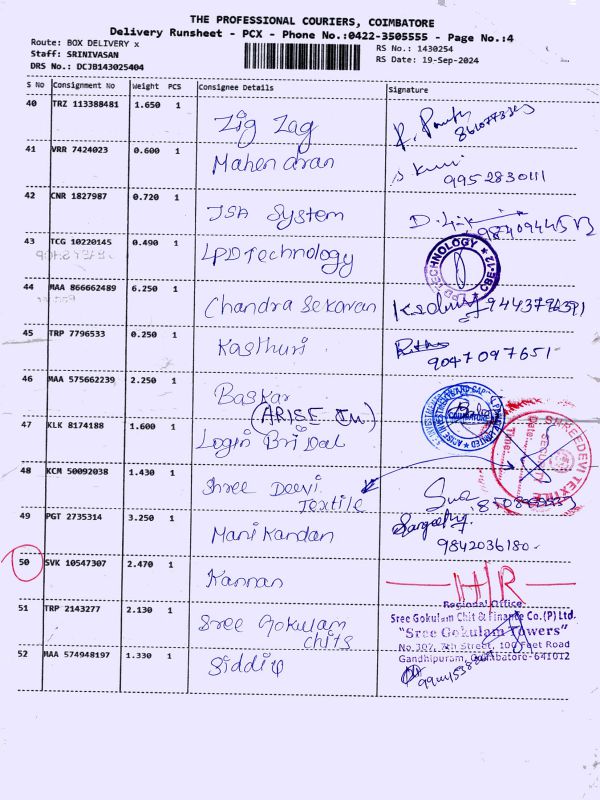 THE PROFESSIONAL COURIERS, COIMBATORE
Delivery Runsheet - PCX - Phone No.:0422-3505555 - Page No.:4
Route: BOX DELIVERY x
RS No.: 1430254
Staff: SRINIVASAN
RS Date: 19-Sep-2024
DRS No.: DCJB143025404
S No Consignment No Weight PCS Consignee Details Signature
40 TRZ 113388481 1.650 1 Zig Zag
41 VRR 7424023 0.600 1 Mahendran 9952830111
42 CNR 1827987 0.720 1 JSA System
43 TCG 10220145 0.490 1 LPD Technology
LPD TECHNOLOGY CBE-12
44 MAA 866662489 6.250 1 Chandra Sekaran
45 TRP 7796533 0.250 1 Kasthuri 9047097651
46 MAA 575662239 2.250 1 Baskar
(ARISE In.)
47 KLK 8174188 1.600 1 Login Bridal
SHREEDEVI TEXTILE
SECURITY
Date:
Time:
48 KCM 50092038 1.430 1 Shree Deevi
Textile
49 PGT 2735314 3.250 1 Manikandan
9842036180
50 SVK 10547307 2.470 1 Kannan
51 TRP 2143277 2.130 1 Sree Gokulam
chits
Regional Office:
Sree Gokulam Chit & Finance Co.(P) Ltd.
"Sree Gokulam Towers"
No.307, 7th Street, 100 Feet Road
Gandhipuram, Coimbatore-641012
52 MAA 574948197 1.330 1 Siddiq